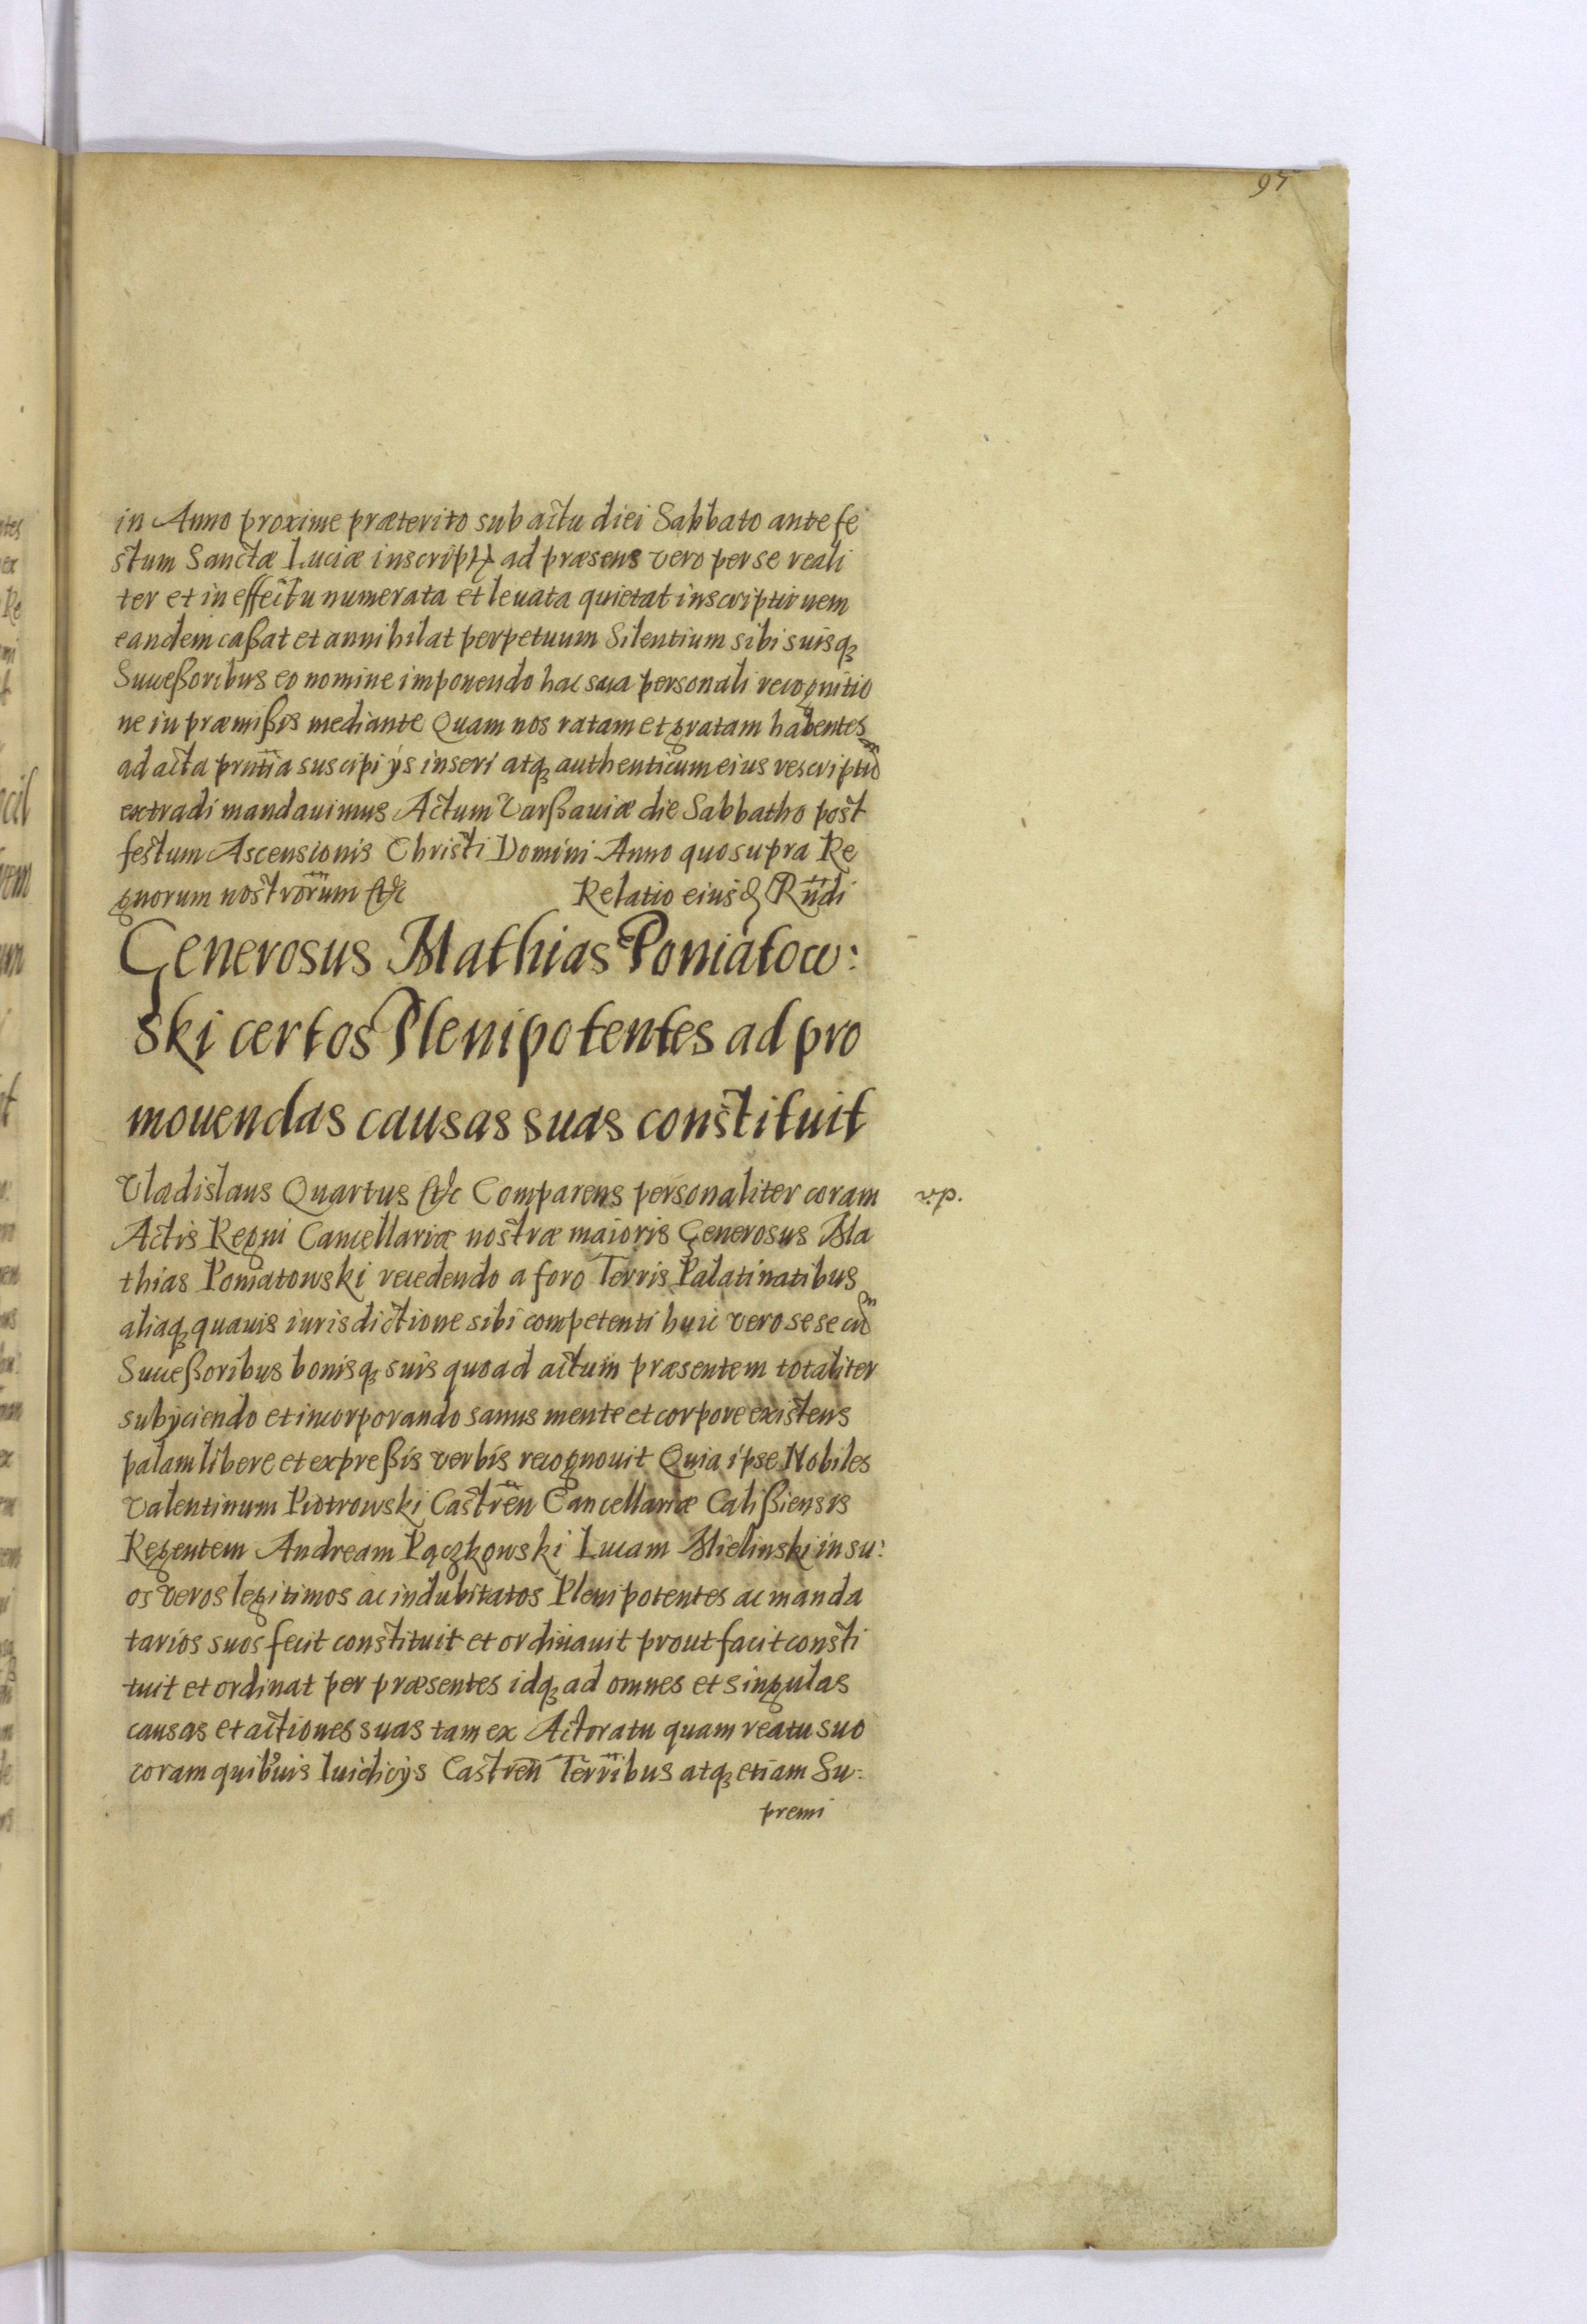 97
in Anno proxime præterito sub actu diei Sabbato ante fe
stum Sanctæ Luciæ inscript ad præsens vero per se reali
ter et in effectu numerata et levata quietat inscriptionem
eandem caßat et annihilat perpetuum Silentium sibi suisq
Succeßoribus eo nomine imponendo hac sua personali recognitio
ne in præmißis mediante Quam nos ratam et gratam habentes
ad acta pntia suscipi ijs inseri atq authenticum eius rescriptu
extradi mandauimus Actum Varßauiæ die Sabbatho post
festum Ascensionis Christi Domini Anno quo supra Re
gnorum nostrorum etc Relatio eiusd Rndi
Generosus Mathias Poniatow:
ski certos Plenipotentes ad pro
mouendas causas suas constituit
Vladislaus Quartus etc Comparens personaliter coram
v.p.
Actis Regni Cancellariæ nostræ maioris Generosus Ma
thias Poniatowski recedendo a foro Terris Palatinatibus
aliaq quauis iurisdictione sibi competenti huic vero sese cu
Succeßoribus bonisq suis quoad actum præsentem totaliter
subijciendo et incorporando sanus mente et corpore existens
palam libere et expreßis verbis recognouit Quia ipse Nobiles
Valentinum Piotrowski Castren Cancellariæ Calißiensis
Regentem Andream Pączkowski Lucam Mielinski in su:
os veros legitimos ac indubitatos Plenipotentes ac manda
tarios suos fecit constituit et ordinauit prout facit consti
tuit et ordinat per præsentes idq ad omnes et singulas
causas et actiones suas tam ex Actoratu quam reatu suo
coram quibuis Iuidicijs Castren Terribus atq etiam Su:
premi